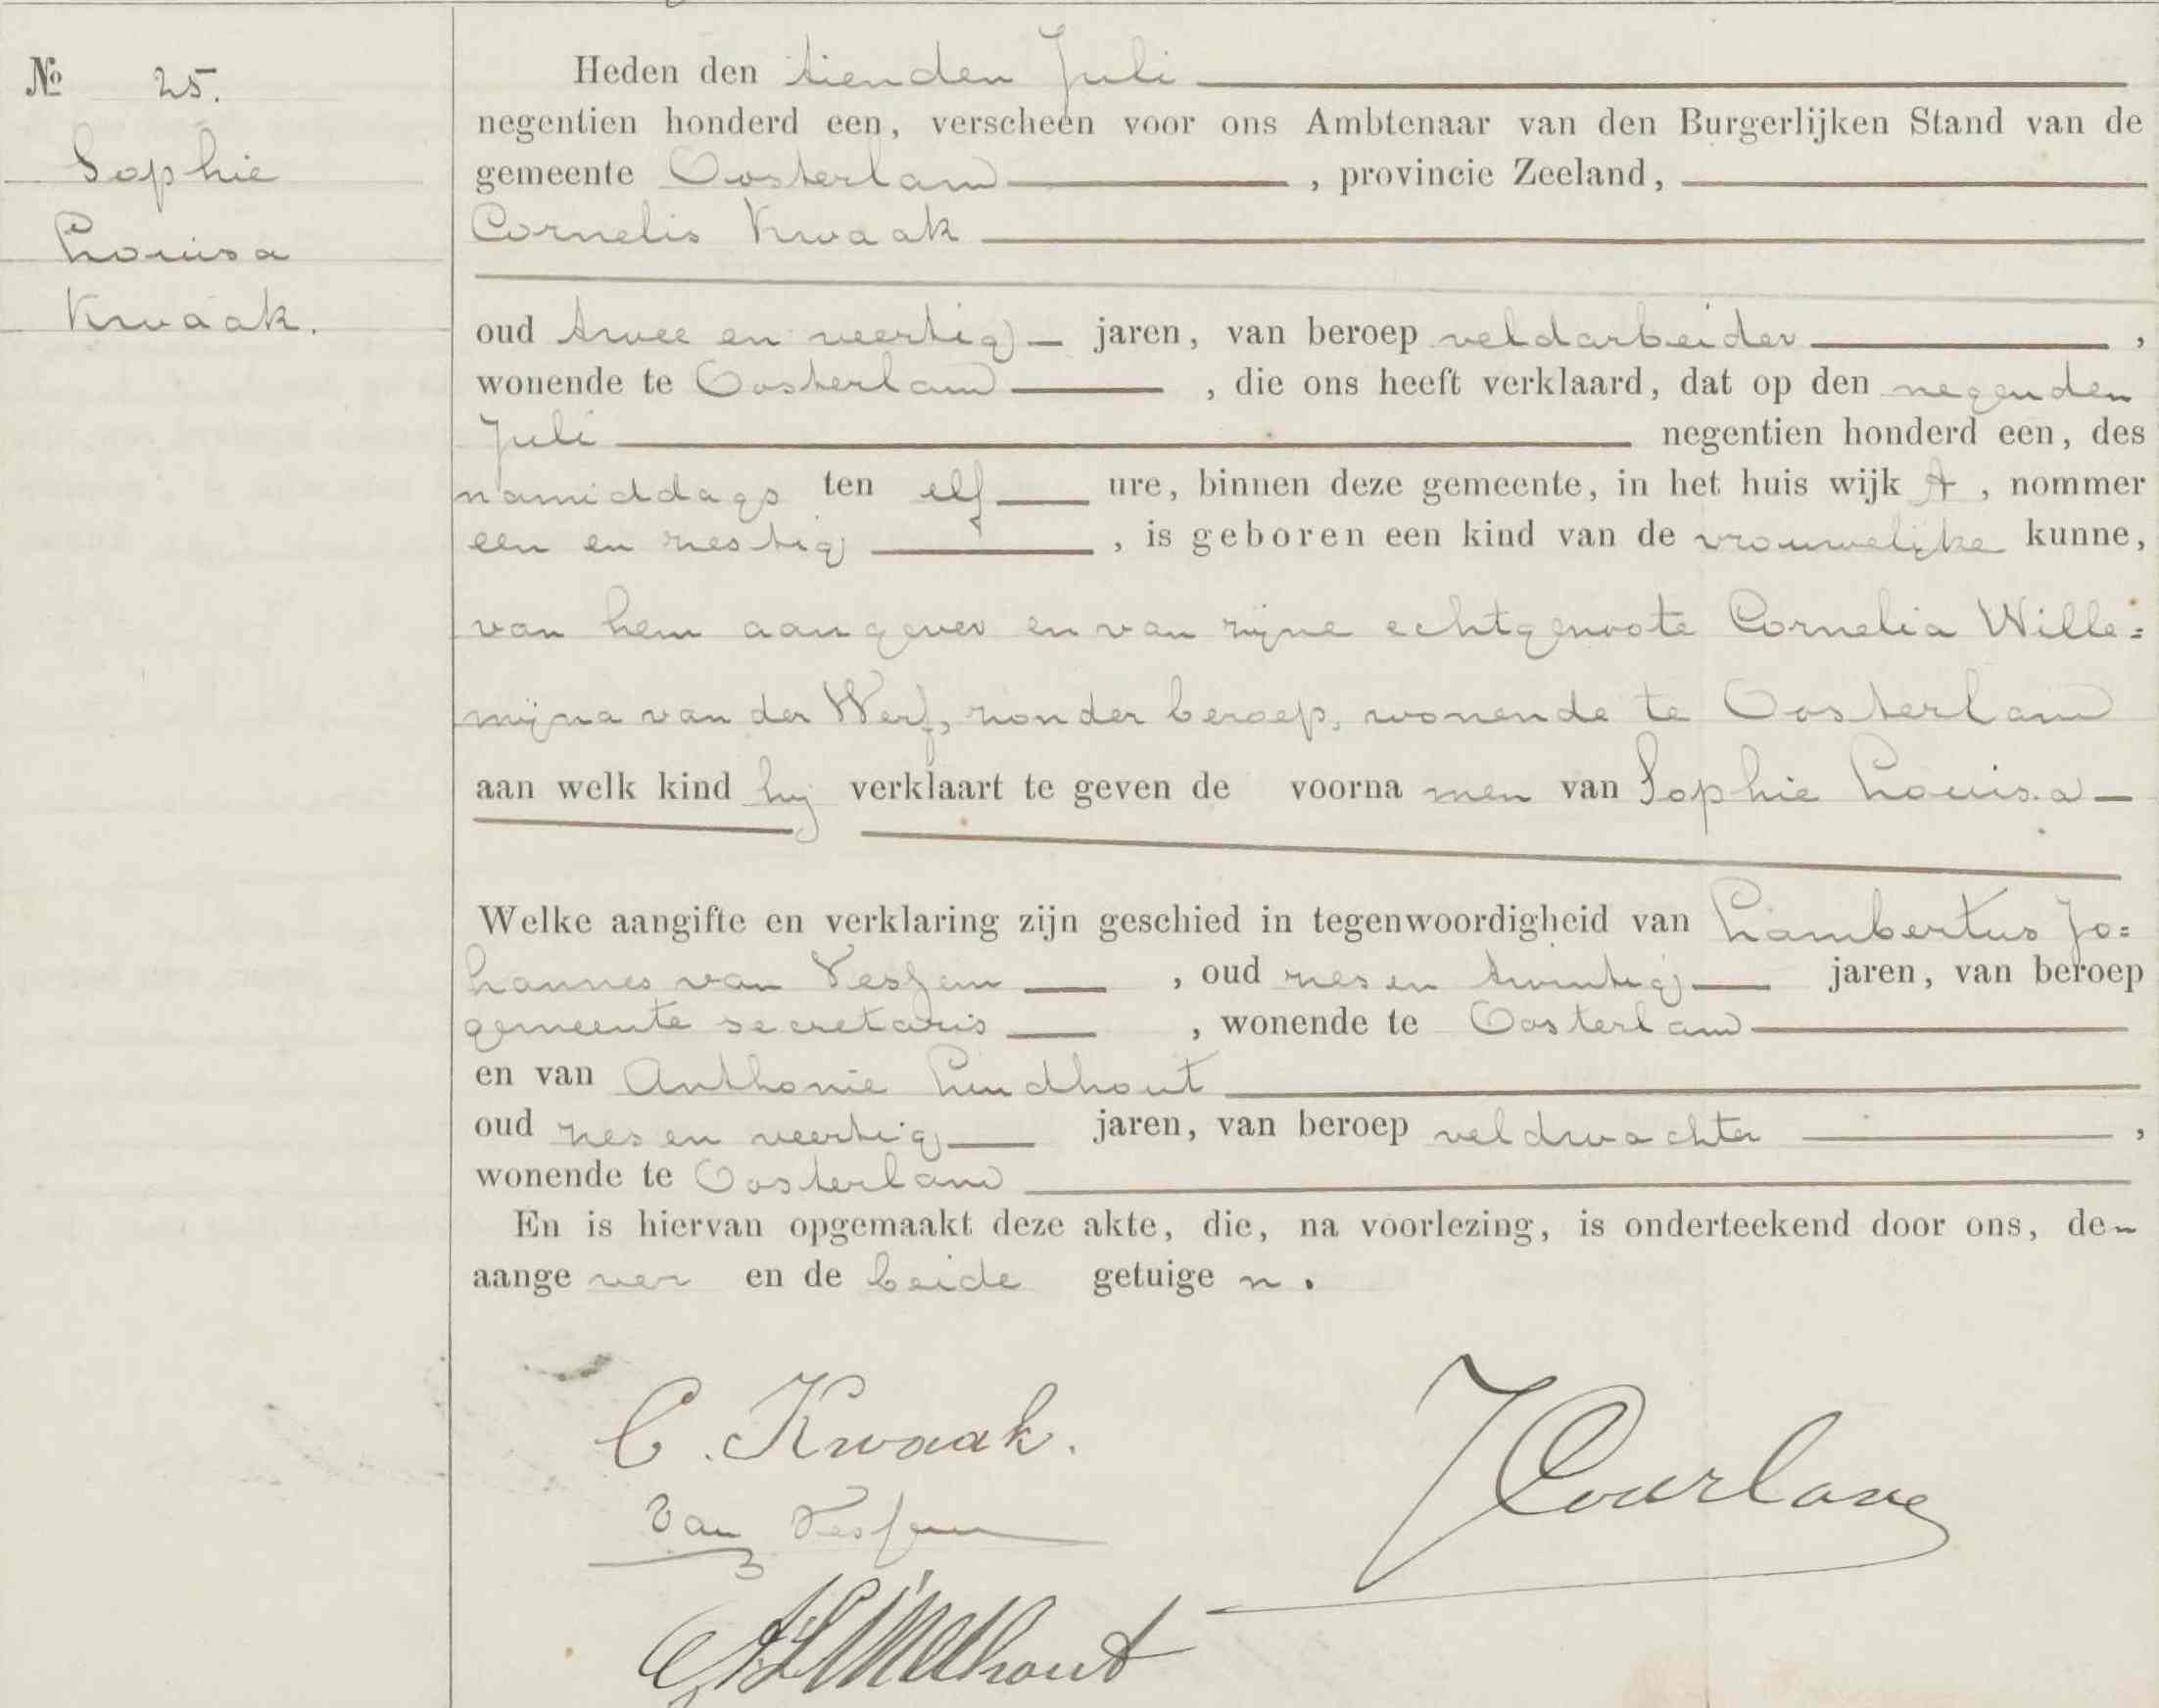 Nº 25.
Sophie
Louisa
Kwaak.
Heden den tienden Juli
negentien honderd een, verscheen voor ons Ambtenaar van den Burgerlijken Stand van de
gemeente Oosterland , provincie Zeeland,
Cornelis Kwaak
oud twee en veertig jaren, van beroep veldarbeider ,
wonende te Oosterland , die ons heeft verklaard, dat op den negenden
Juli negentien honderd een, des
namiddags ten elf ure, binnen deze gemeente, in het huis wijk A , nommer
een en zestig , is geboren een kind van de vrouwelijke kunne,
van hem aangever en van zijne echtgenoote Cornelia Wille=
mijna van der Werf, zonder beroep, wonende te Oosterland
aan welk kind hij verklaart te geven de voorna men van Sophie Louisa
Welke aangifte en verklaring zijn geschied in tegenwoordigheid van Lambertus Jo=
hannes van Vessem , oud zes en twintig jaren, van beroep
gemeente secretaris , wonende te Oosterland
en van Anthonie Lindhout
oud zes en veertig jaren, van beroep veldwachter ,
wonende te Oosterland
En is hiervan opgemaakt deze akte, die, na voorlezing, is onderteekend door ons, den
aange ver en de beide getuige n.
C. Kwaak.
Van Vessem
A Lindhout